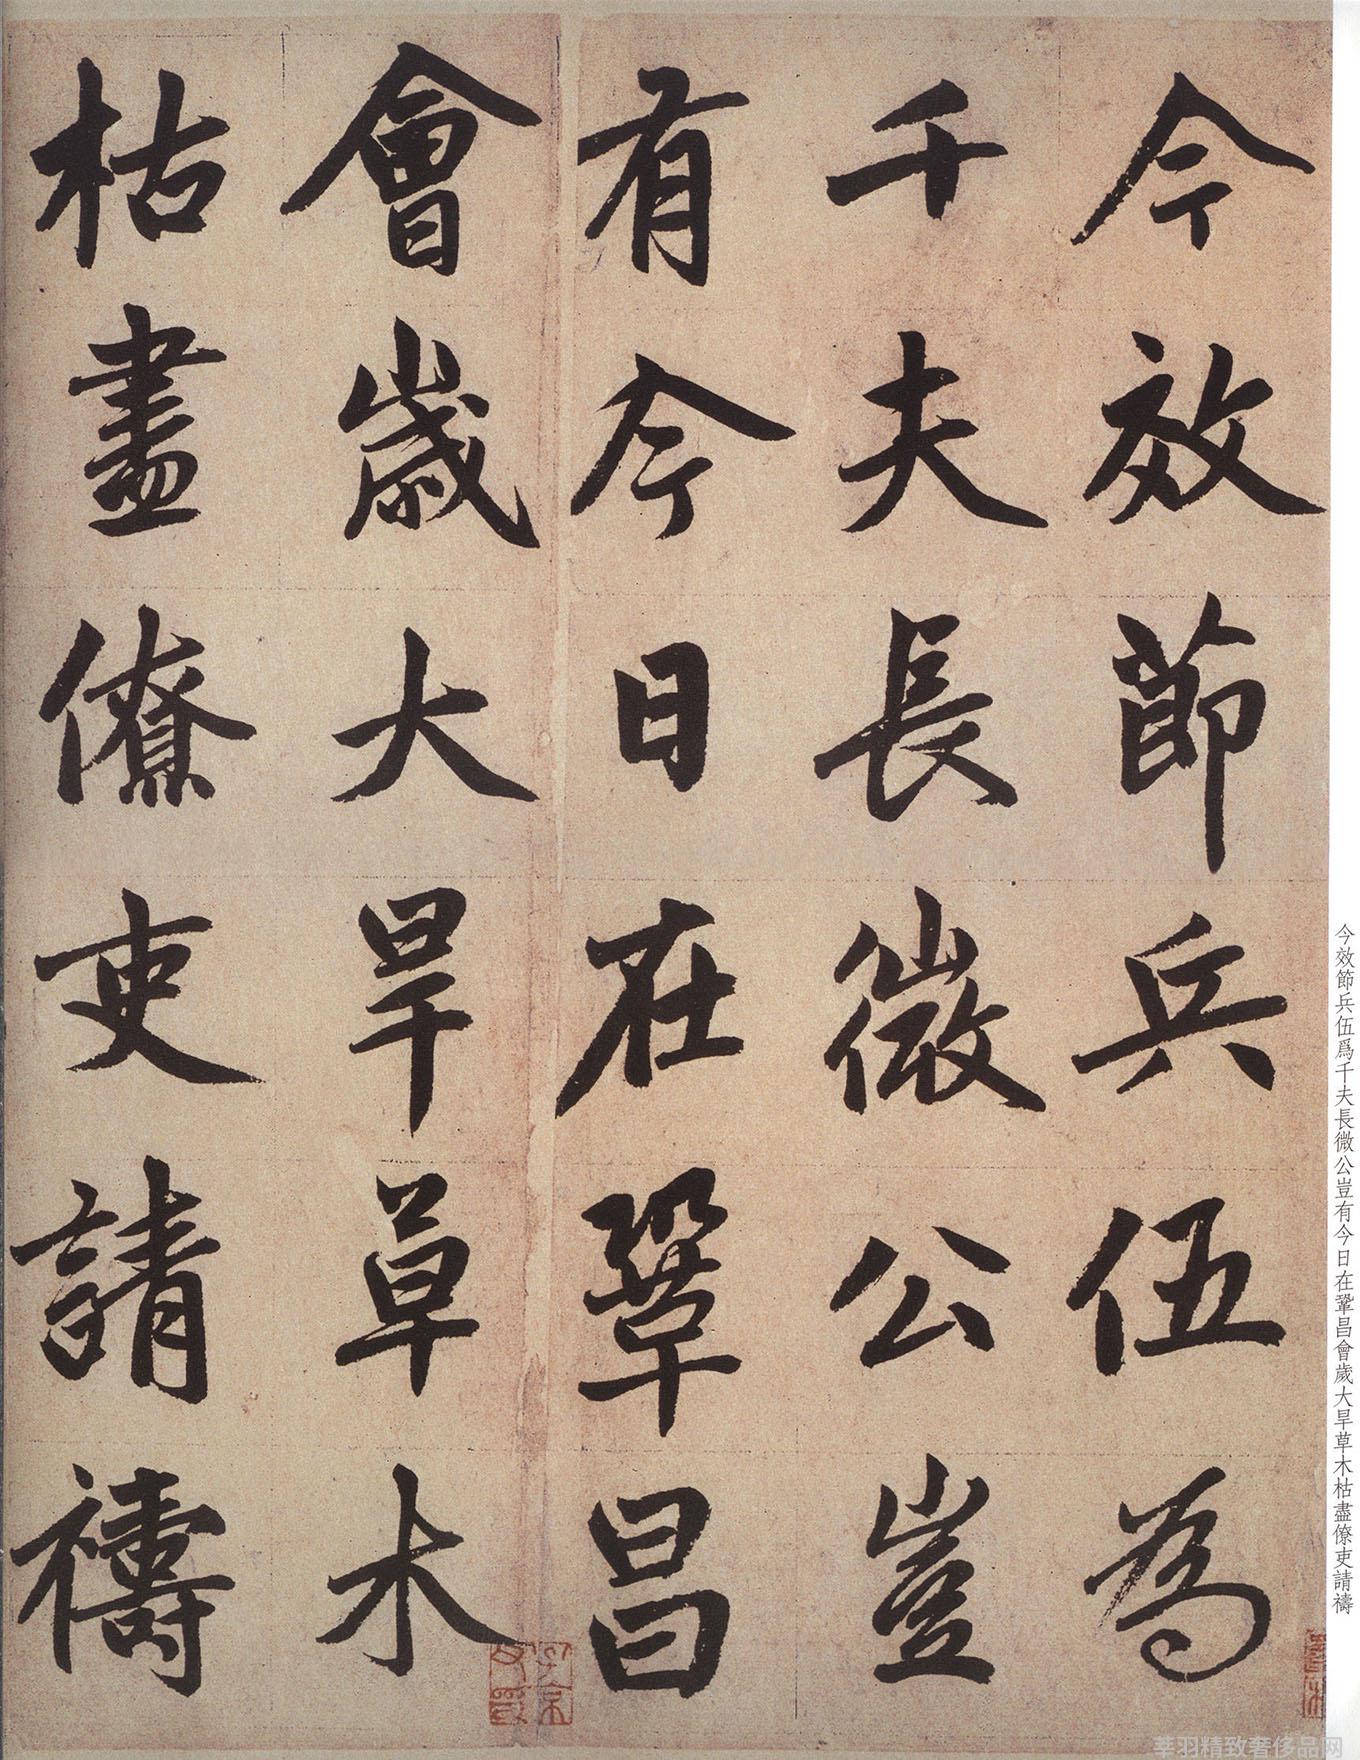 今效節兵伍為
千夫長微公豈
有今日在鞏昌
會歲大旱草木
枯盡僚吏請禱
今效節兵伍爲千夫長微公豈有今日在鞏昌會歲大旱草木枯盡僚吏請禱
莘羽精致奢侈品网